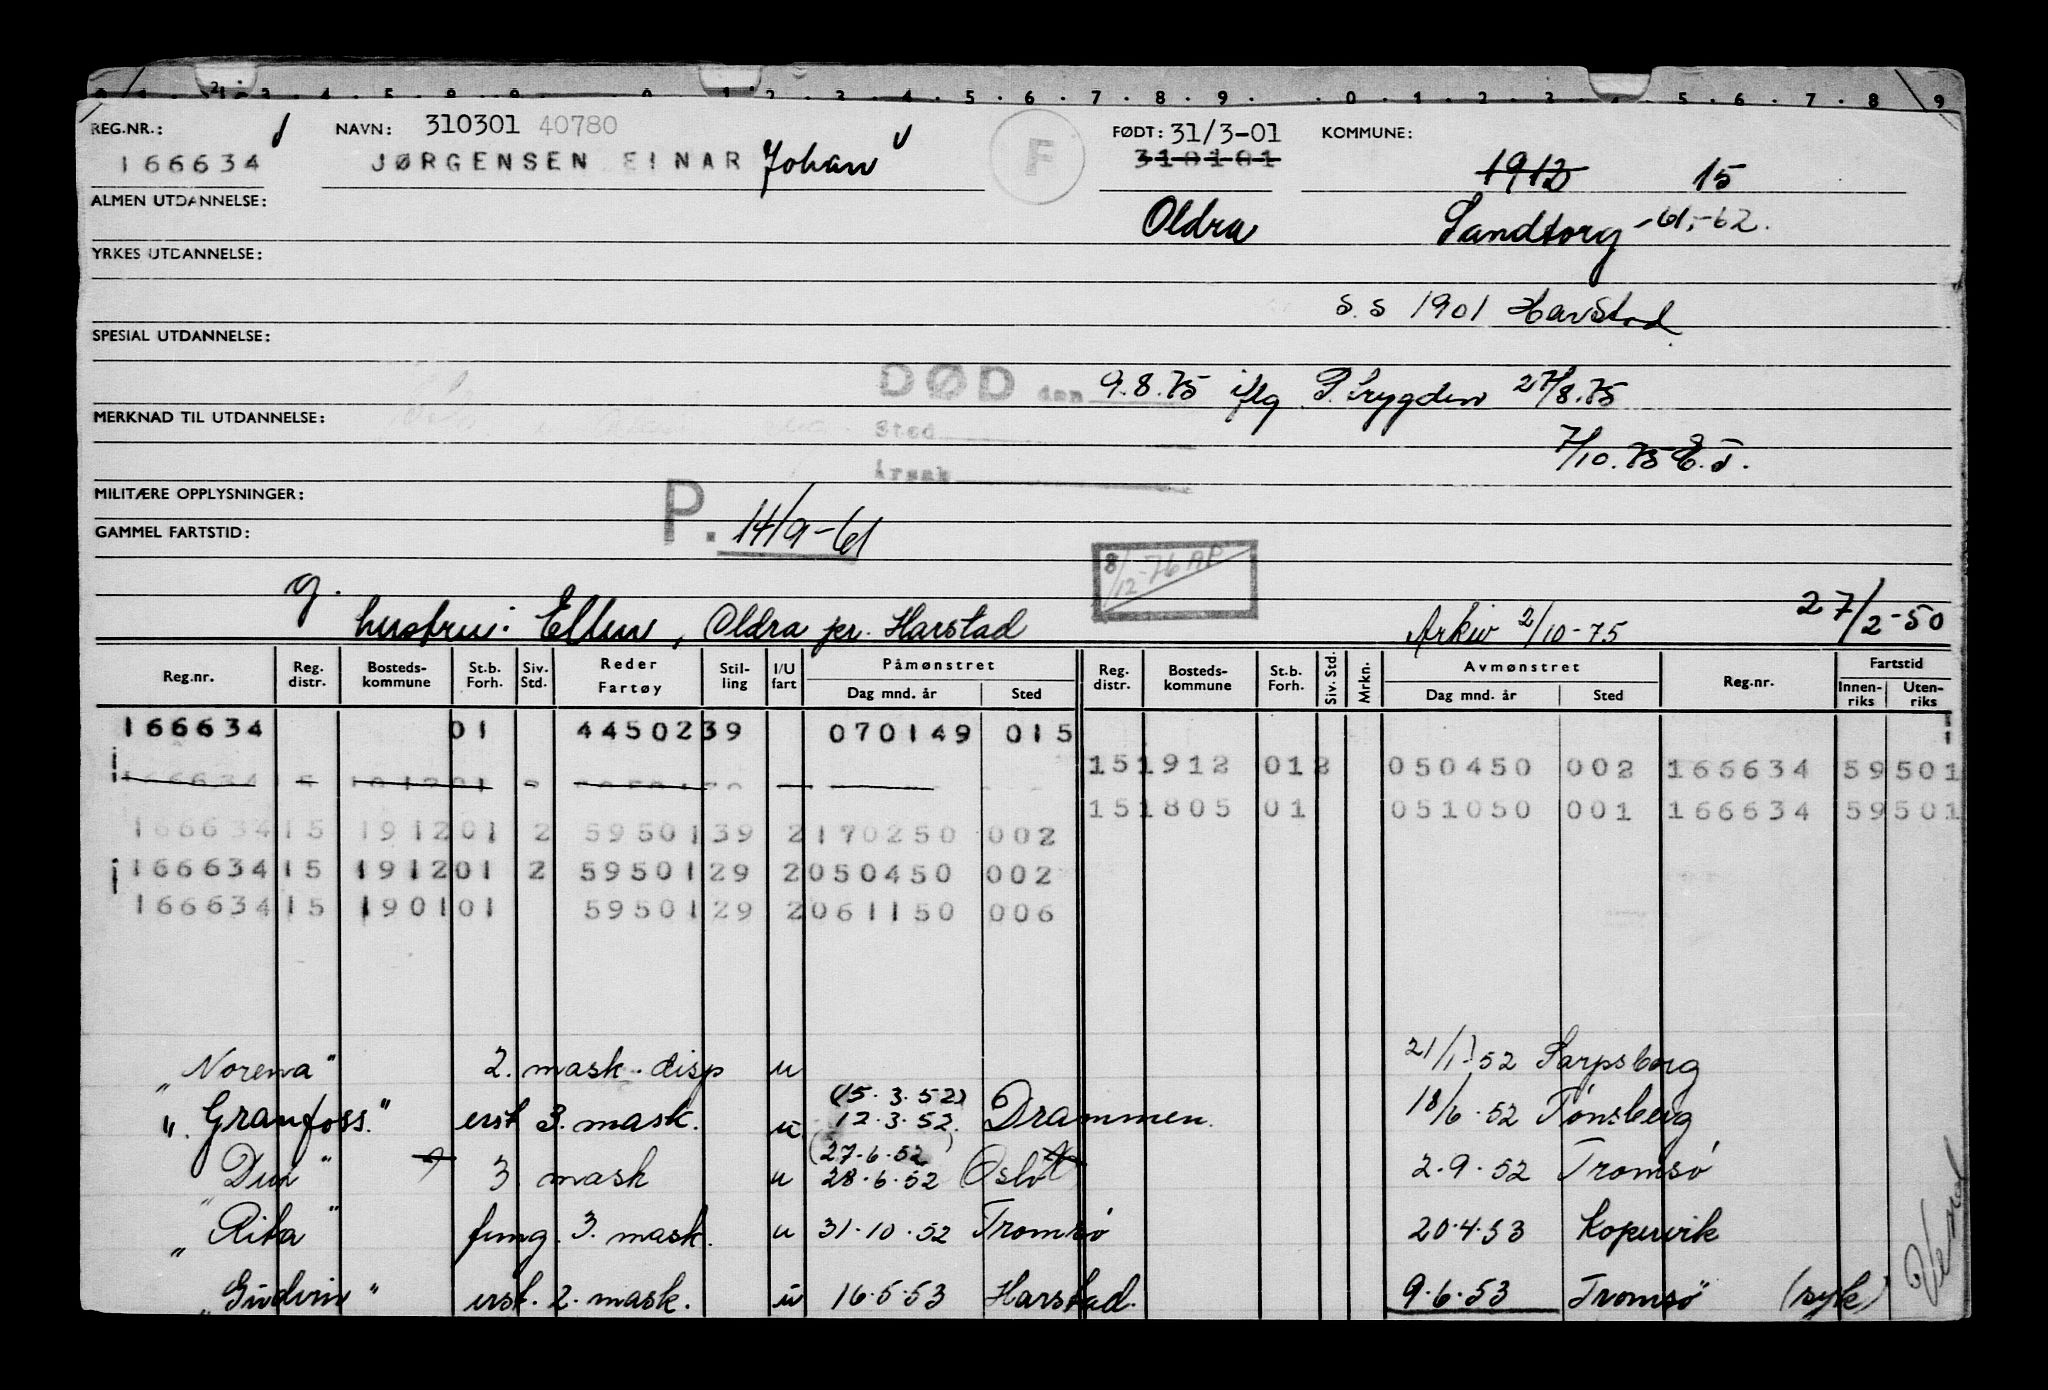 REG.NR.: NAVN: 310301 40780 F FØDT: 31/3-01 KOMMUNE:
166634 JØRGENSEN EINAR Johan 310101 1912 15
ALMEN UTDANNELSE: Oldra Sandtorg -61,-62.
YRKES UTDANNELSE:
S.S 1901 Harstad
SPESIAL UTDANNELSE:
DØD den 9.8.75 iflg P.trygden 27/8.75
MERKNAD TIL UTDANNELSE: Sted
7/10.75 E.T.
Årsak
MILITÆRE OPPLYSNINGER:
GAMMEL FARTSTID: P. 14/9-61
8/12-76 AP
g.
hustru: Ellen, Oldra pr. Harstad Arkiv 2/10-75 27/2-50
Reg.nr. Reg. distr. Bosteds-kommune St.b. Forh. Siv. Std. Reder Fartøy Stil-ling I/U fart Påmønstret Dag mnd. år Sted Reg. distr. Bosteds-kommune St.b. Forh. Siv. Std. Mrkn. Avmønstret Dag mnd. år Sted Reg.nr. Fartstid Innen-riks Uten-riks
166634 01 4450239 070149 015
151912 012 050450 002 166634 59501
151805 01 051050 001 166634 59501
166634 15 191201 2 5950139 2 170250 002
166634 15 191201 2 5950129 2 050450 002
166634 15 190101 5950129 2 061150 006
"Norema" 2. mask. disp u 21/1 52 Sarpsborg
(15.3.52)
"Granfoss." erst 3. mask. u 12.3.52. Drammen. 18/6.52 Tønsberg
(27.6.52)
3 mask u 28.6.52 Oslo 2.9.52 Tromsø
"Rita" fung. 3. mask. u 31.10.52 Tromsø 20.4.53 Kopervik
"Gudvin" erst. 2. mask. u 16.5.53 Harstad. 9.6.53 Tromsø (syk)